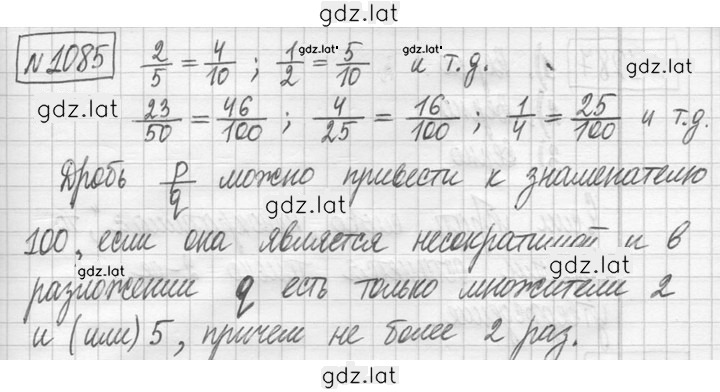 gdz.lat
№1085 2/5 = 4/10 ; 1/2 = 5/10 и т.д.
gdz.lat gdz.lat gdz.lat
gdz.lat
23/50 = 46/100 ; 4/25 = 16/100 ; 1/4 = 25/100 и т.д.
gdz.lat gdz.lat
Дробь p/q можно привести к знаменателю
gdz.lat
100, если она является несократимой и в
gdz.lat gdz.lat
разложении q есть только множители 2
и (или) 5, причем не более 2 раз.
gdz.lat
gdz.lat